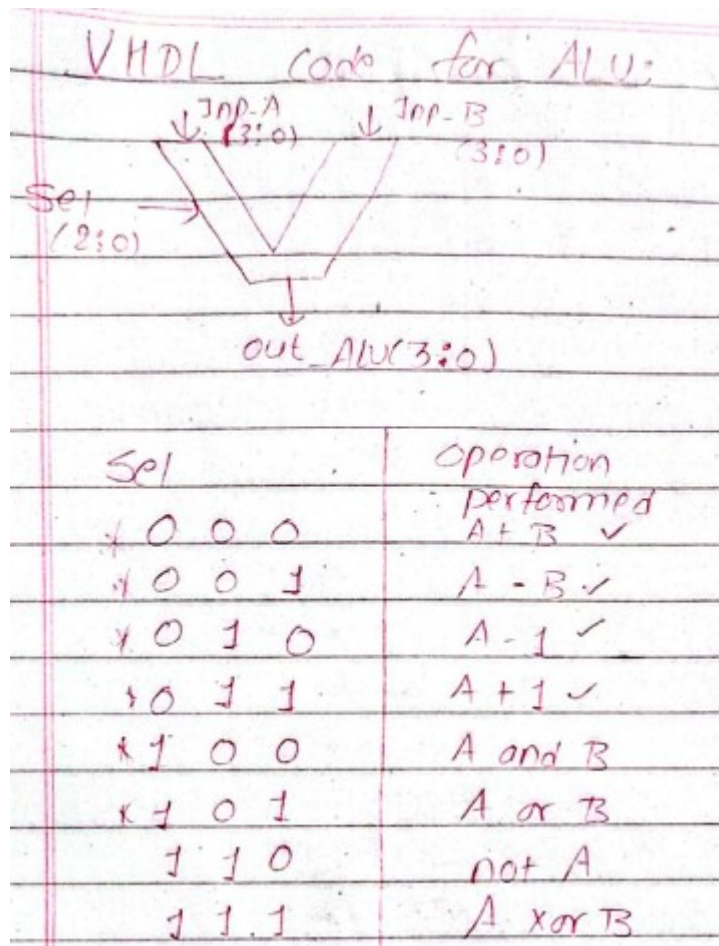 VHDL code for ALU:
Inp-A Inp-B
(3:0) (3:0)
Sel
(2:0)
out_ALU(3:0)
Sel operation
performed
* 0 0 0 A + B ✓
* 0 0 1 A - B ✓
* 0 1 0 A - 1 ✓
* 0 1 1 A + 1 ✓
* 1 0 0 A and B
* 1 0 1 A or B
1 1 0 not A
1 1 1 A xor B